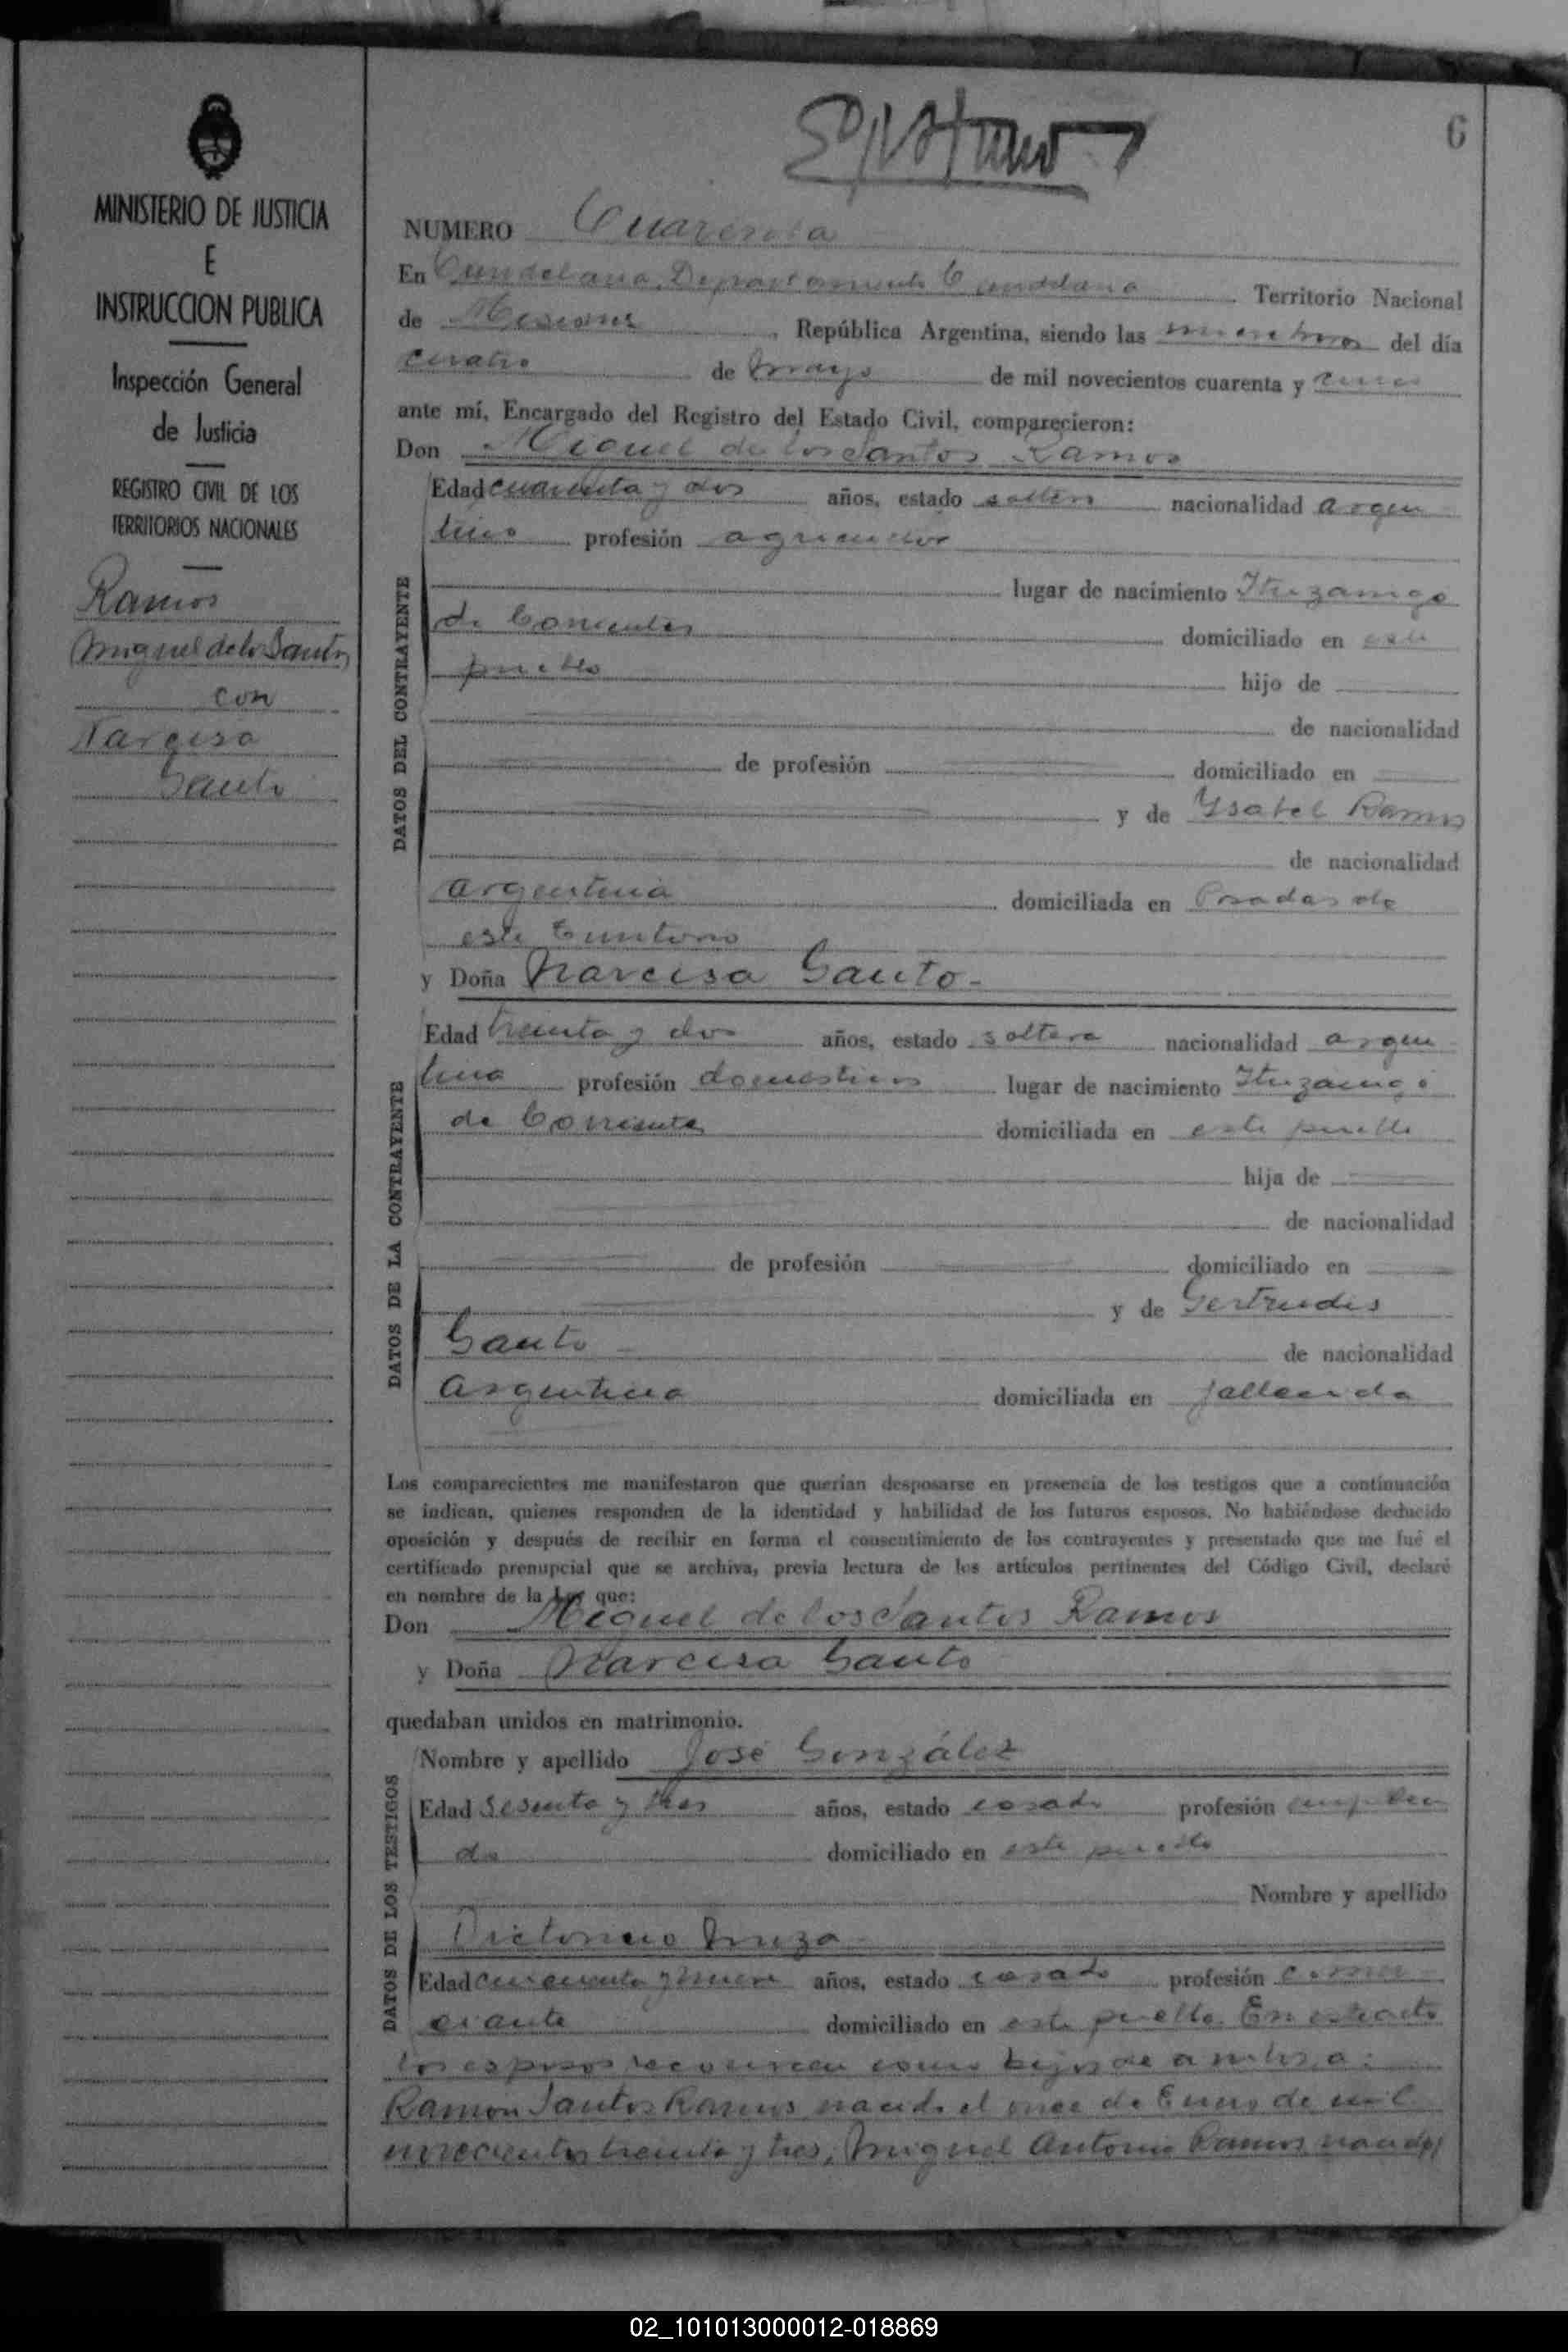 6
MINISTERIO DE JUSTICIA
E
INSTRUCCION PUBLICA
Inspección General
de Justicia
REGISTRO CIVIL DE LOS
TERRITORIOS NACIONALES
Ramos
Miguel de los Santos
con
Narcisa
Gauto
NUMERO Cuarenta
En Candelaria, Departamento Candelaria Territorio Nacional
de Misiones, República Argentina, siendo las nueve horas del día
cuatro de mayo de mil novecientos cuarenta y cinco
ante mí, Encargado del Registro del Estado Civil, comparecieron:
Don Miguel de los Santos Ramos
DATOS DEL CONTRAYENTE
Edad cuarenta y dos años, estado soltero nacionalidad argen
tino profesión agricultor
lugar de nacimiento Ituzaingo
de Corrientes domiciliado en este
pueblo hijo de
de nacionalidad
de profesión domiciliado en
y de Ysabel Ramos
de nacionalidad
argentina domiciliada en Posadas de
este Territorio
y Doña Narcisa Gauto-
DATOS DE LA CONTRAYENTE
Edad treinta y dos años, estado soltera nacionalidad argen
tina profesión domesticos lugar de nacimiento Ituzaingó
de Corrientes domiciliada en este pueblo
hija de
de nacionalidad
de profesión domiciliado en
y de Gertrudis
Gauto - de nacionalidad
argentina domiciliada en fallecida
Los comparecientes me manifestaron que querían desposarse en presencia de los testigos que a continuación
se indican, quienes responden de la identidad y habilidad de los futuros esposos. No habiéndose deducido
oposición y después de recibir en forma el consentimiento de los contrayentes y presentado que me fué el
certificado prenupcial que se archiva, previa lectura de los artículos pertinentes del Código Civil, declaré
en nombre de la Ley que:
Don Miguel de los Santos Ramos
y Doña Narcisa Gauto
quedaban unidos en matrimonio.
DATOS DE LOS TESTIGOS
Nombre y apellido José González
Edad Sesenta y tres años, estado casado profesión emplea
do domiciliado en este pueblo
Nombre y apellido
Edad cincuenta y nueve años, estado casado profesión comer
ciante domiciliado en este pueblo. En este acto
los esposos reconocen como hijos de ambos a:
Ramon Santos Ramos nacido el once de Enero de mil
novecientos treinta y tres, Miguel Antonio Ramos nacido
02_101013000012-018869